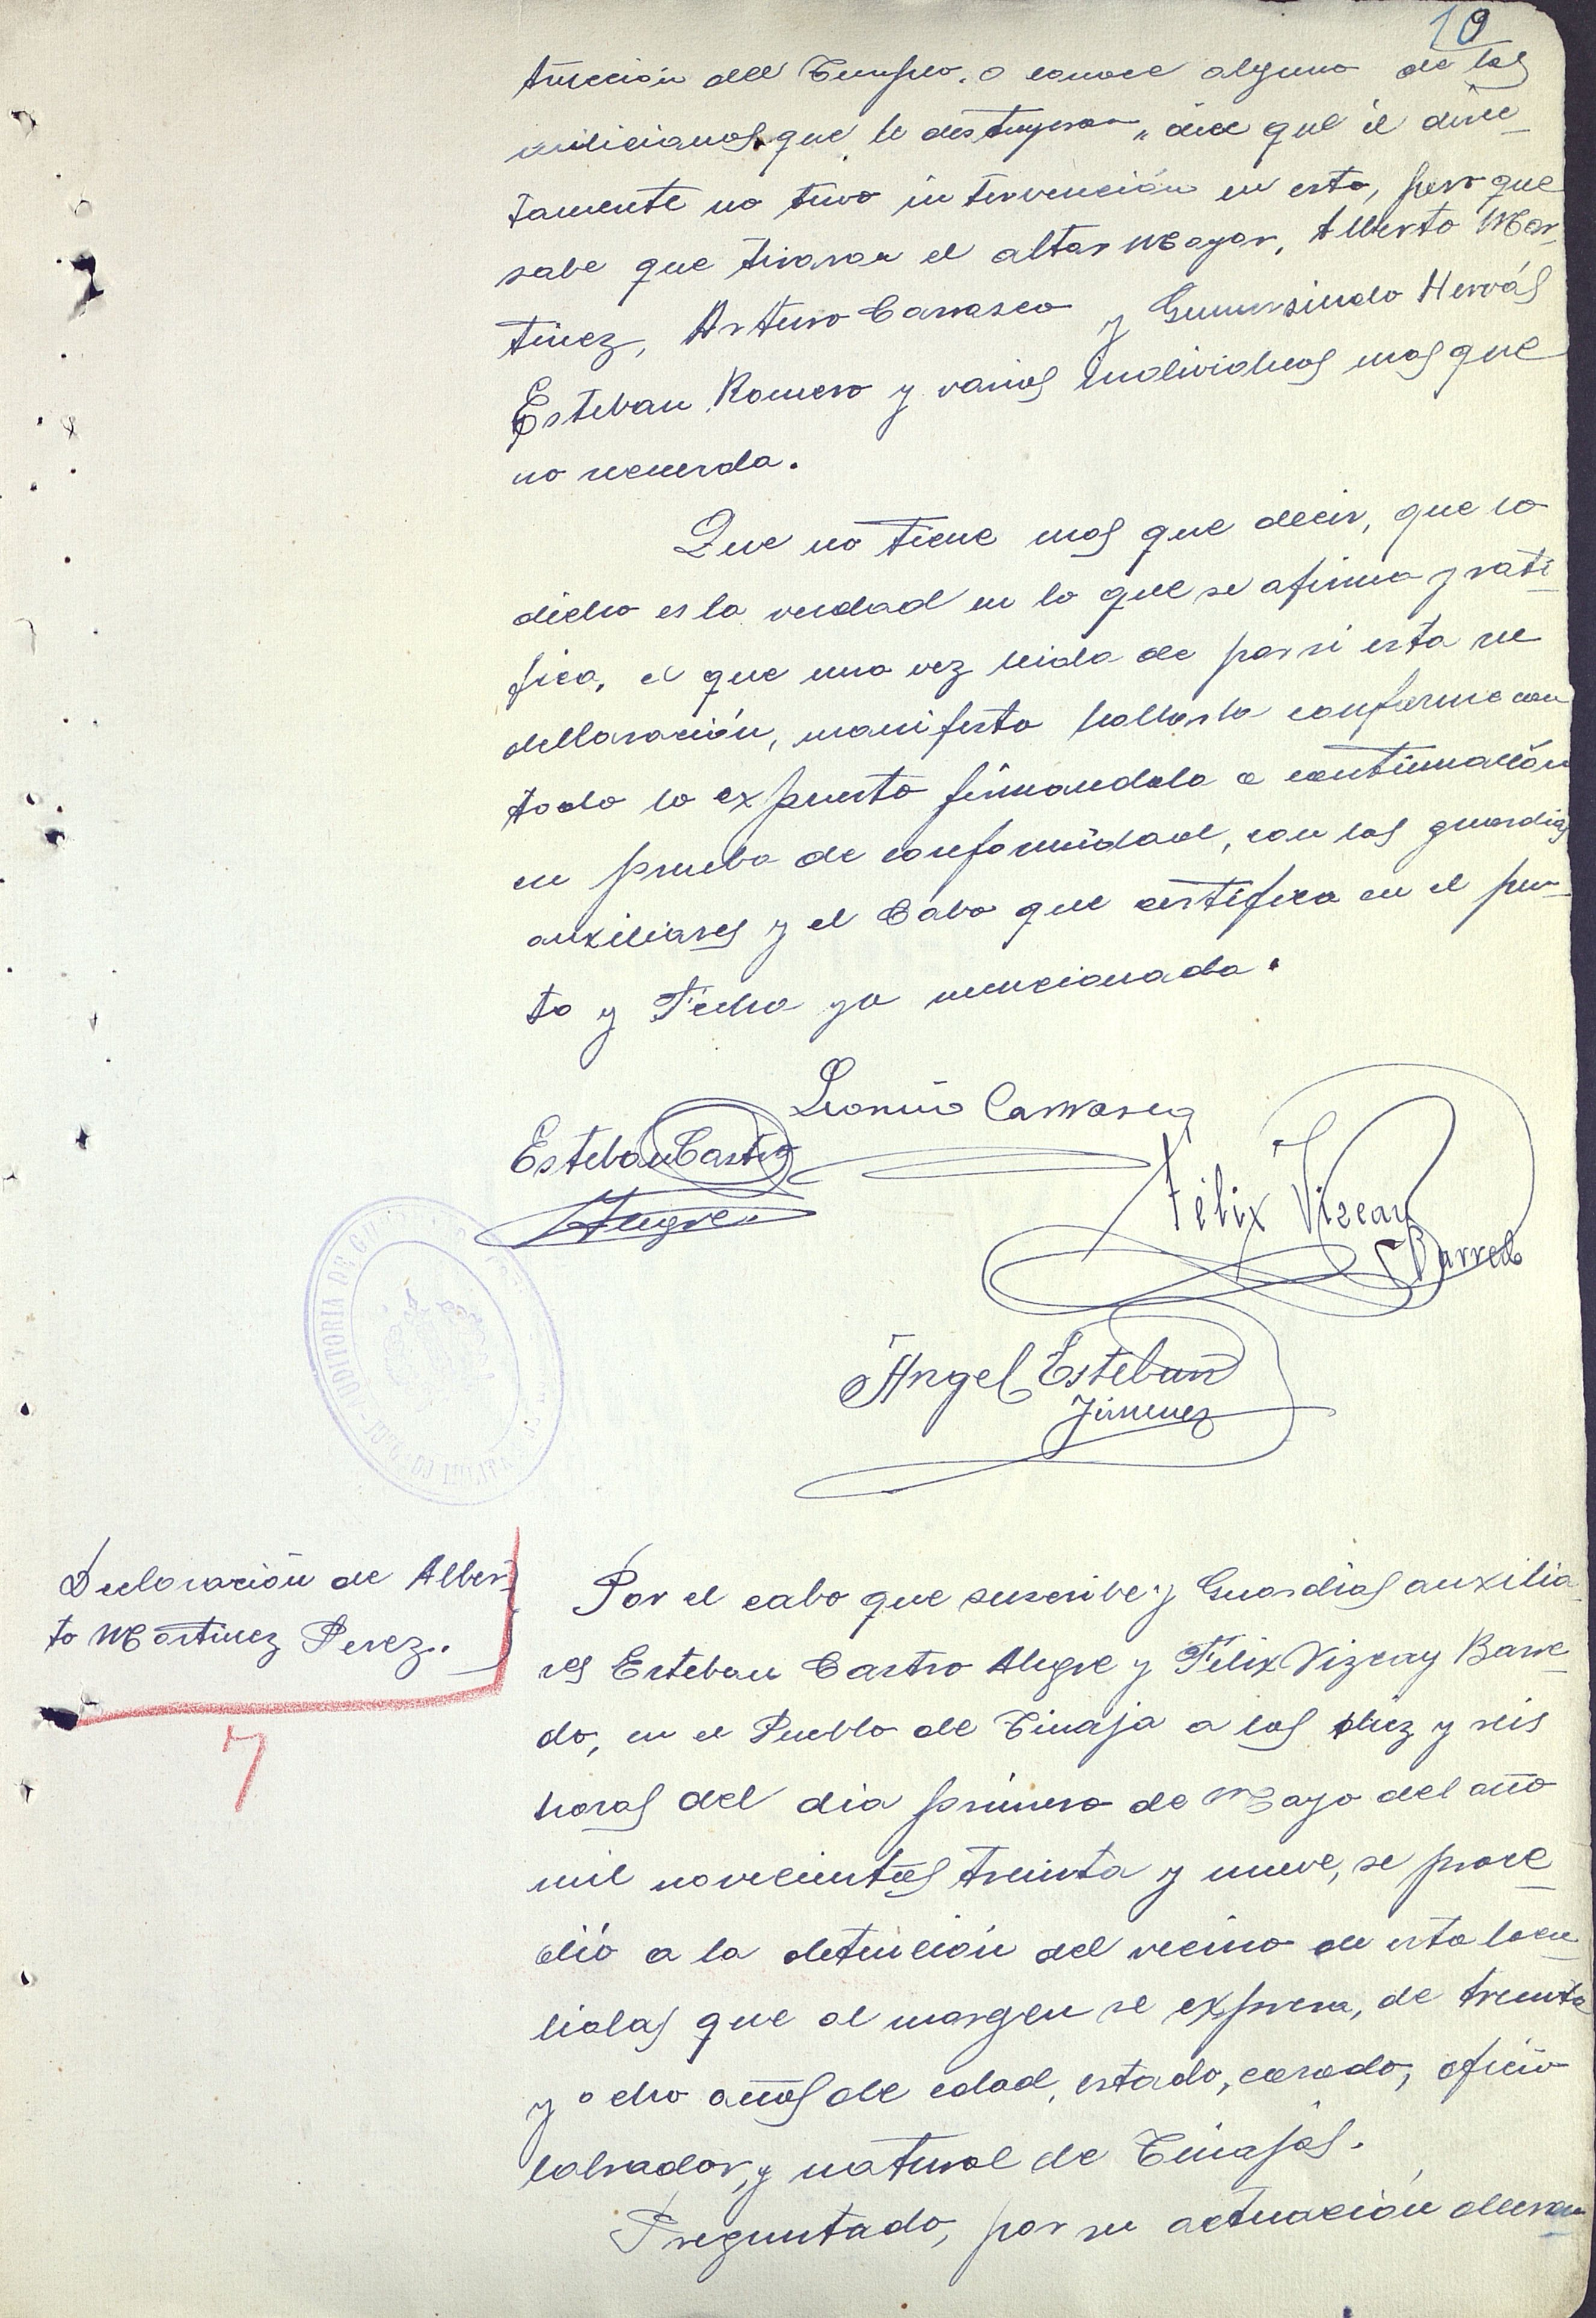 10
trucción del Templo, o conoce alguno de los
milicianos que lo destuyeron, dice que él direc-
tamente no tuvo intervención en esto, pero que
sabe que tiraron el altar Mayor, Alberto Mar-
tinez, Arturo Carrasco y Gumersindo Hervás
Esteban Romero y varios individuos mas que
no recuerda.
Que no tiene mas que decir, que lo
dicho es la verdad en lo que se afirma y rati-
fica, el que una vez leida de por si esta su
dellaración, manifesto hallarla conforme con
todo lo expuesto firmandola a continuación
en prueba de conformidad, con los guardias
auxiliares y el Cabo que certifica en el pun-
to y Fecha ya mencionada.
Leoncio Carrasco
Esteban Castro
Alegre
Félix Vizcay
Barredo
Angel Esteban
Jimenez
AUDITORIA DE
MILITAR
Declaración de Alber-
to Martinez Perez.
7
Por el cabo que suscribe y Guardias auxilia-
res Esteban Castro Alegre y Félix Vizcay Barre-
do, en el Pueblo de Tinaja a las diez y seis
horas del dia primero de Mayo del año
mil novecientos treinta y nueve, se proce-
dió a la detención del vecino de esta loca-
lidad que al margen se expresa, de treinta
y ocho años de edad, estado, casado, oficio
labrador, y natural de Tinajas.
Preguntado, por su actuación duran